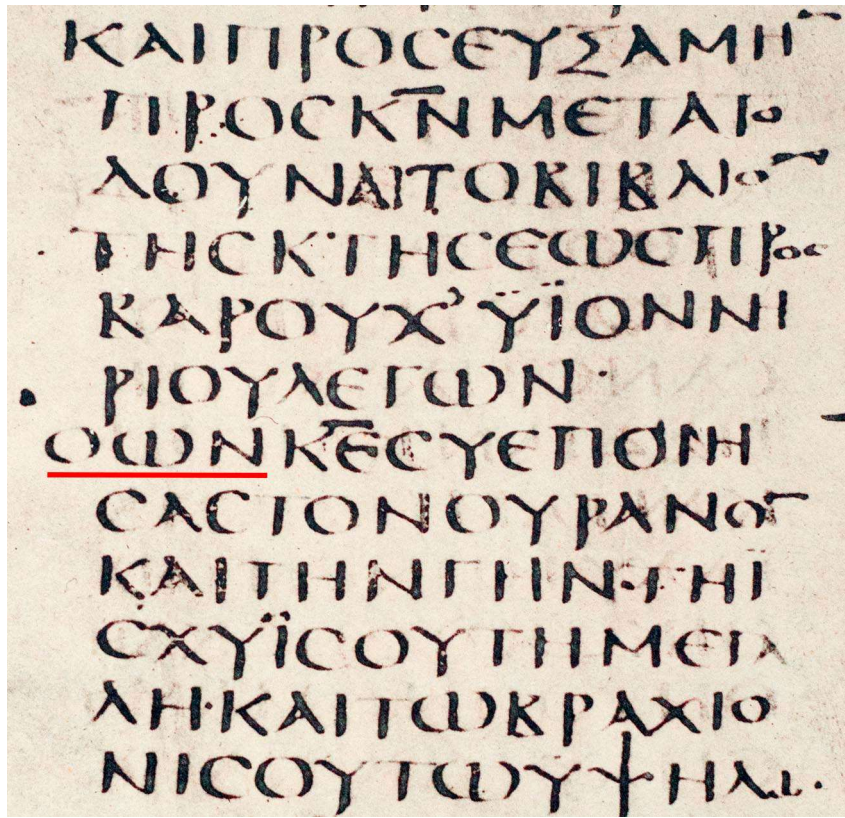 ΚΑΙΠΡΟϹΕΥΞΑΜΗ‾
ΠΡΟϹΚ̅Ν̅ΜΕΤΑΤΟ
ΔΟΥΝΑΙΤΟΒΙΒΛΙΟ‾
ΤΗϹΚΤΗϹΕΩϹΠΡΟϹ
ΒΑΡΟΥΧ’ΫΪΟΝΝΗ
ΡΙΟΥΛΕΓΩΝ·
ΟΩΝΚ̅Ε̅ϹΥΕΠΟΙΗ
ϹΑϹΤΟΝΟΥΡΑΝΟ‾
ΚΑΙΤΗΝΓΗΝ·ΤΗΪ
ϹΧΥΪϹΟΥΤΗΜΕΓΑ
ΛΗ·ΚΑΙΤΩΒΡΑΧΙΟ
ΝΙϹΟΥΤΩΥΨΗΛΩ·